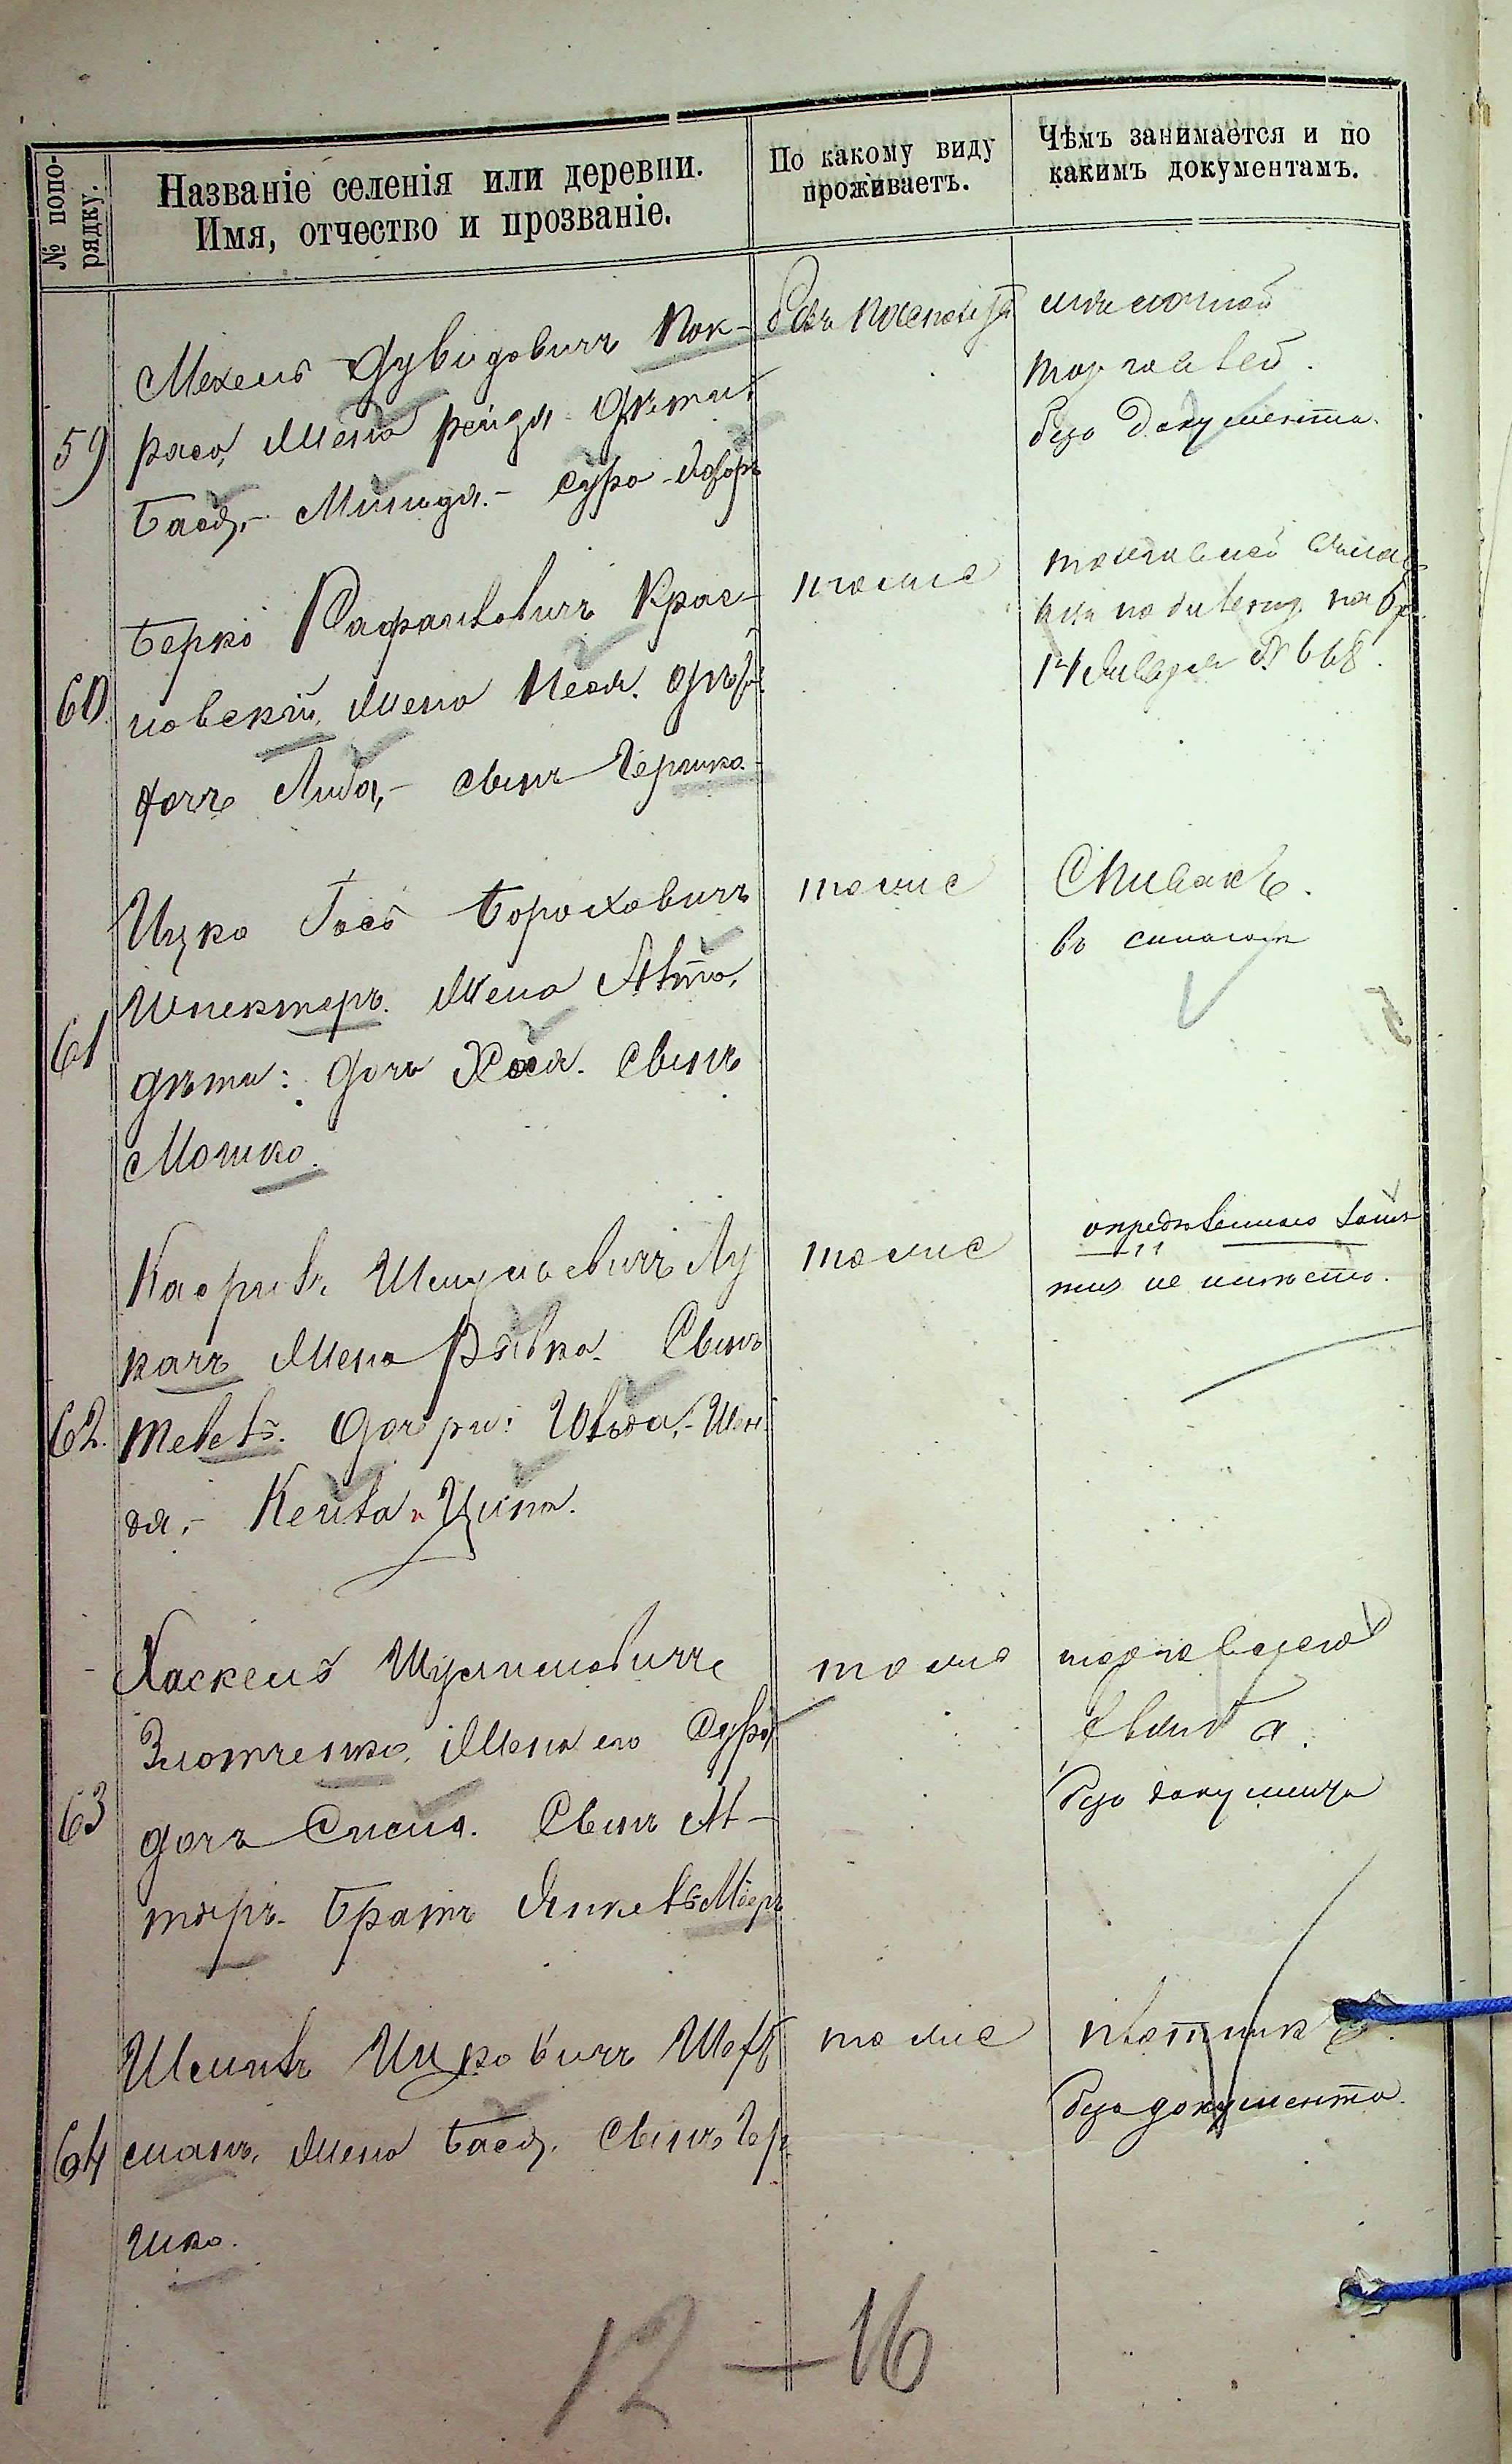 № попо-
рядку.
Названіе селенія или деревни.
Имя, отчество и прозваніе.
По какому виду
проживаетъ.
Чѣмъ занимается и по
какимъ документамъ.
59
Мехель Дувидовичъ Пок-
раса, Жена Рейзя Дѣти:
Бася, - Миндля. - Сура -
безъ паспорта
мелочной
торговлей.
безъ документа.
60
Берко Рафаиловичъ Крас-
новскій, Жена Песя. Дѣти:
дочь Либа, - сынъ Гершко
тоже
14 Января № 668.
61
Ицко Іось Бороховичъ
Шпекторъ. Жена
дѣти: дочь Хая. сынъ
Мошко.
тоже
Спивакъ.
въ синагогѣ
62.
Шмулевичъ Лу
качъ Жена Ривка. Сынъ
Тевель. Дочери:
дя, - Кейла и Ципа.
тоже
опредѣленнаго заня-
тія не имѣетъ.
63
Хаскель Шулимовичъ
Злотченко, Жена его Сура
дочь Сися. Сынъ Л-
Братъ Янкель Мееръ
тоже
безъ документа
64
Ицковичъ Шох
манъ, Жена Бася, Сынъ Гер
шко.
тоже
плотникъ.
безъ документа.
12 - 16